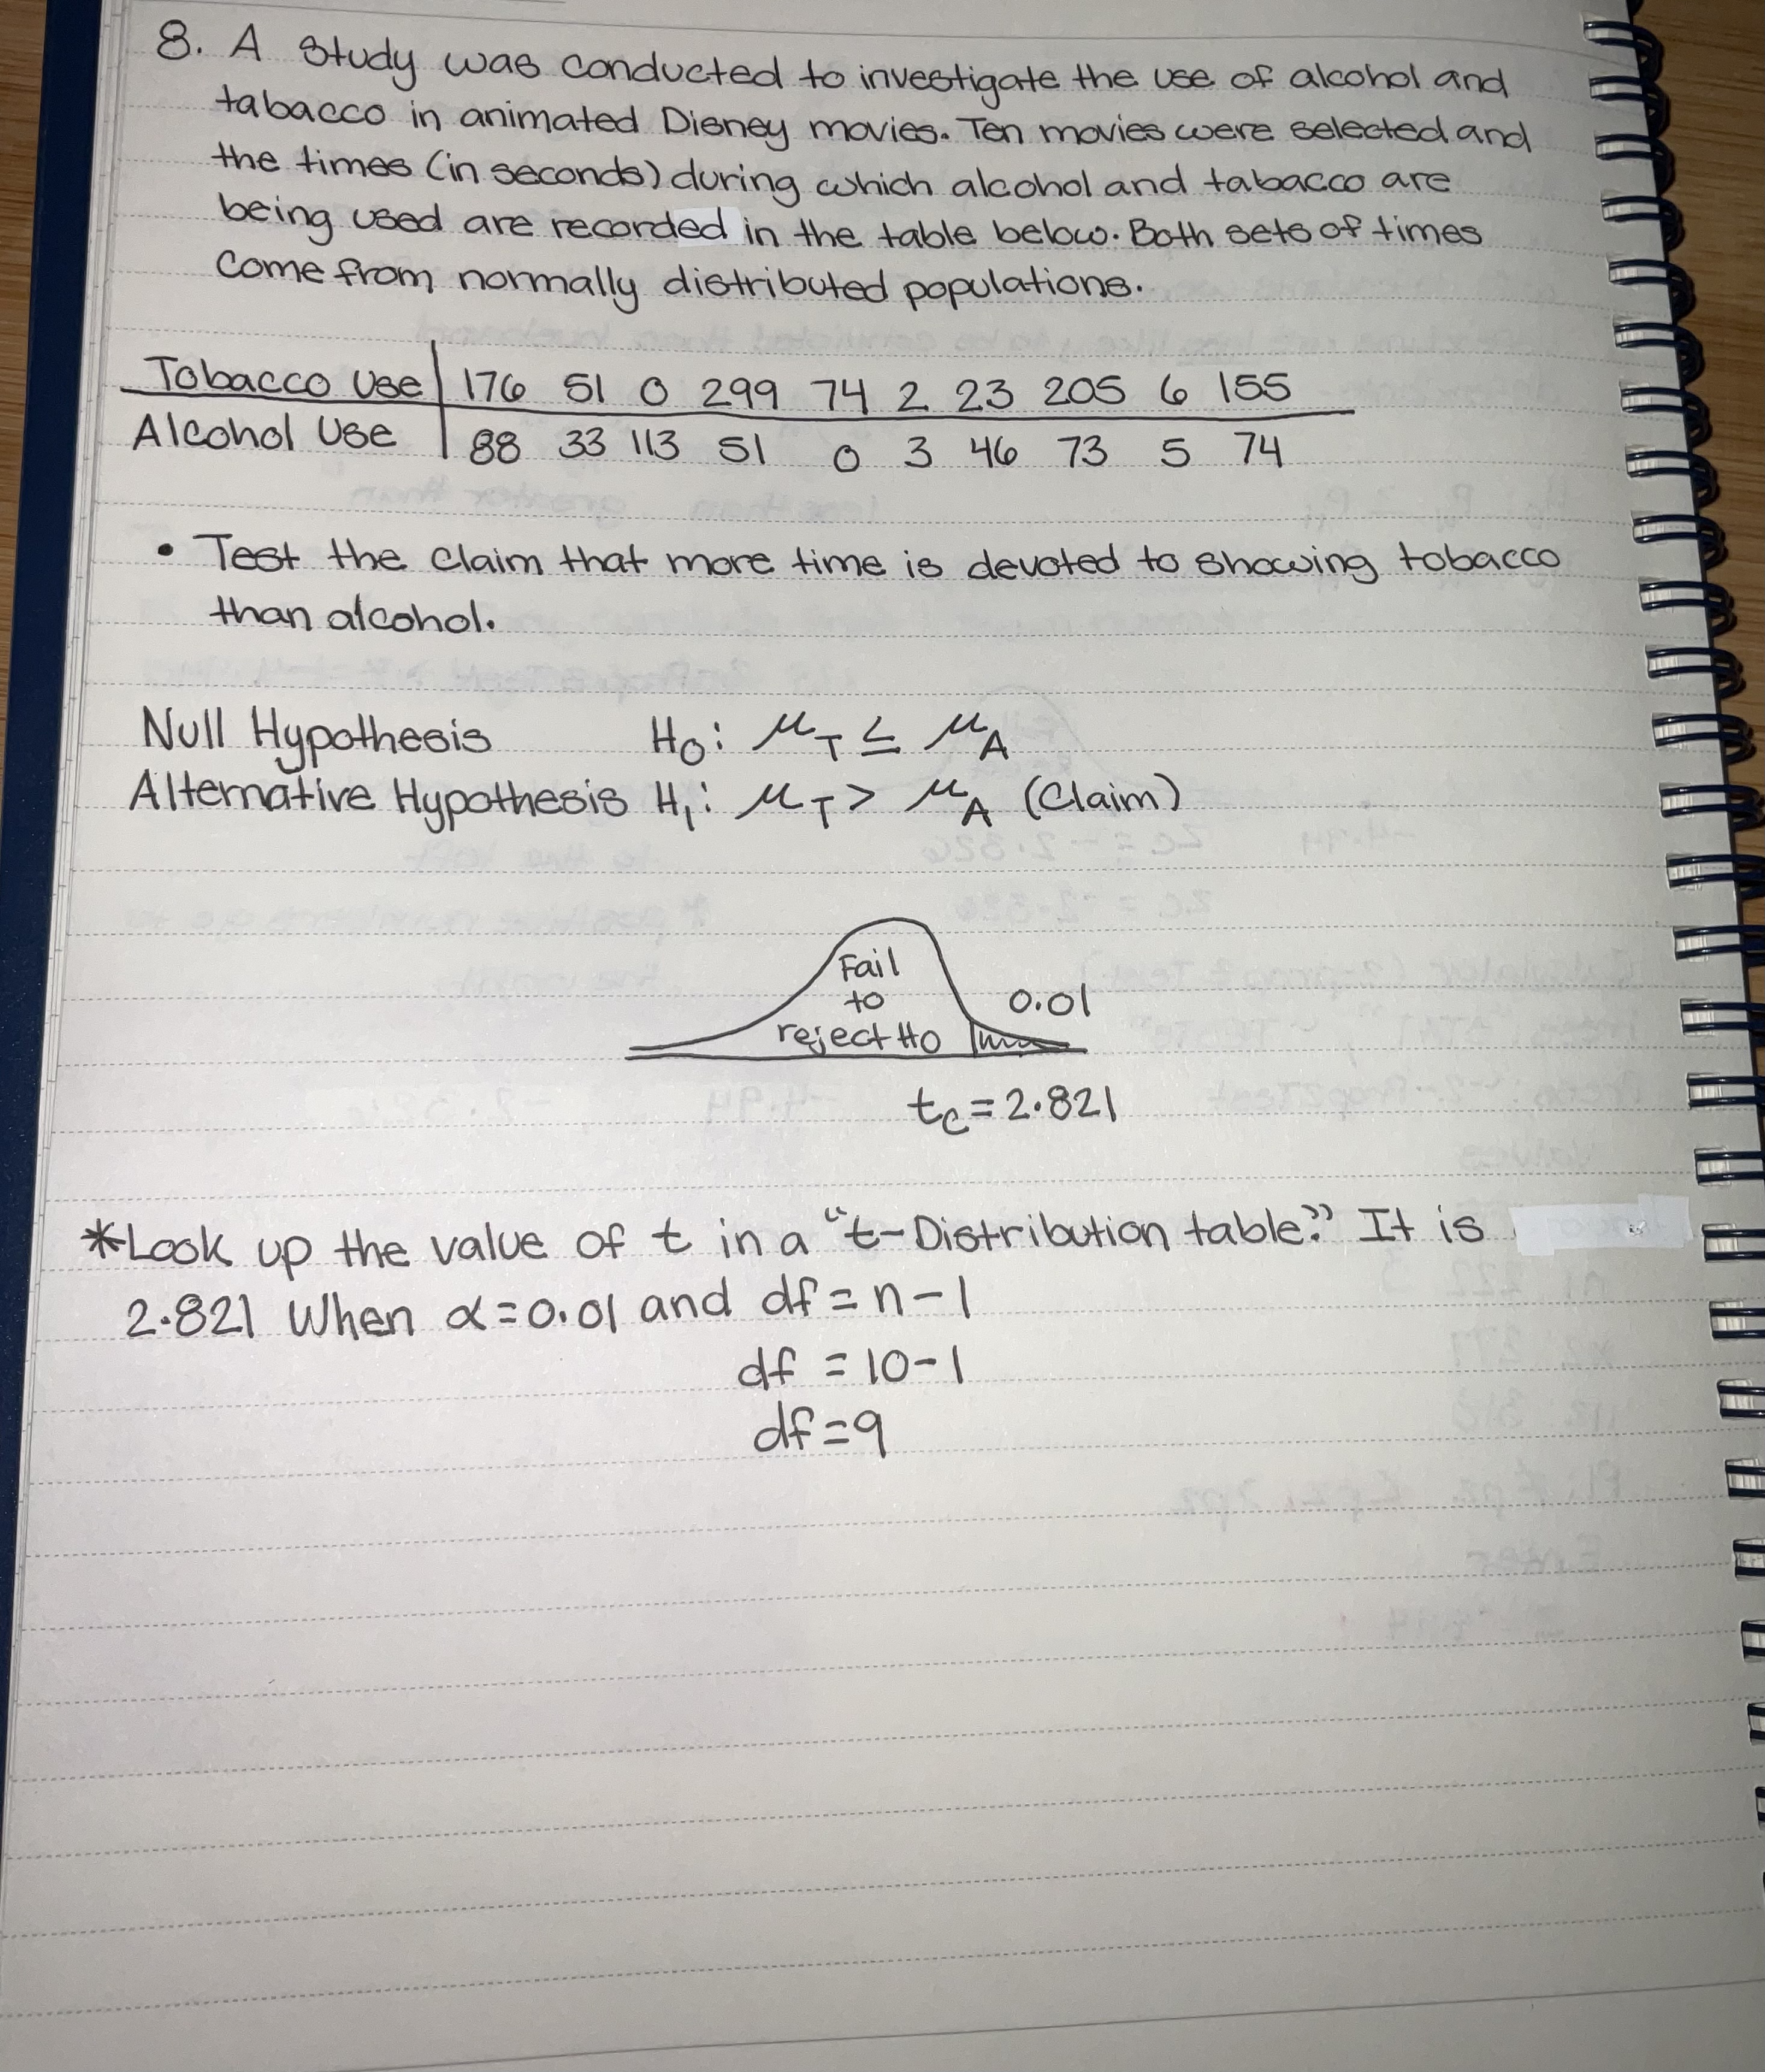 8. A Study was conducted to investigate the use of alcohol and
tabacco in animated Disney movies. Ten movies were selected and
the times (in seconds) during which alcohol and tabacco are
being used are recorded in the table below. Both sets of times
Come from normally distributed populations.
Tobacco Use 176 51 0 299 74 2 23 205 6 155
Alcohol Use 88 33 113 51 0 3 46 73 5 74
• Test the Claim that more time is devoted to showing tobacco
than alcohol.
Null Hypothesis H₀: μ_T ≤ μ_A
Alternative Hypothesis H₁: μ_T > μ_A (Claim)
Fail
to
reject H0
0.01
t_c = 2.821
*Look up the value of t in a "t-Distribution table." It is
2.821 When α = 0.01 and df = n - 1
df = 10 - 1
df = 9